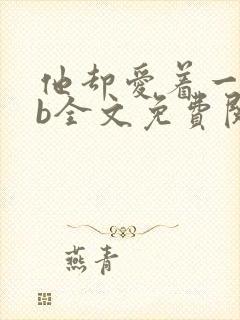 他却爱着一
b全文免费阅
燕青